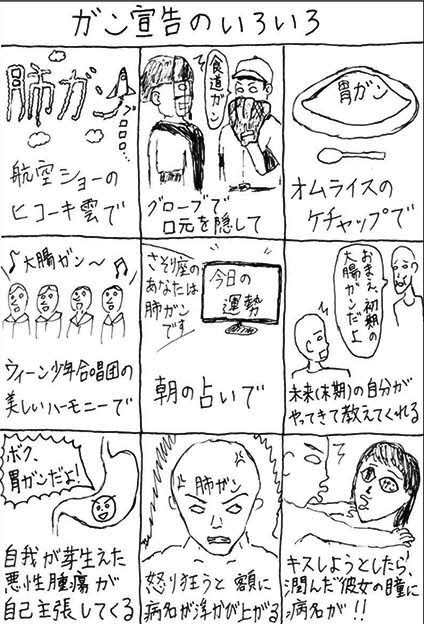 ガン宣告のいろいろ
肺ガン
ゴロゴロ…
航空ショーの
ヒコーキ雲で
食道ガン
グローブで
口元を隠して
胃ガン
オムライスの
ケチャップで
♪大腸ガン〜♬
ウィーン少年合唱団の
美しいハーモニーで
さそり座の
あなたは
肺ガン
です
今日の
運勢
朝の占いで
おまえ、初期の
大腸ガンだよ
未来(末期)の自分が
やってきて教えてくれる
ボク、
胃ガンだよ!
自我が芽生えた
悪性腫瘍が
自己主張してくる
肺ガン
怒り狂うと額に
病名が浮かび上がる
キスしようとしたら、
潤んだ彼女の瞳に
病名が!!